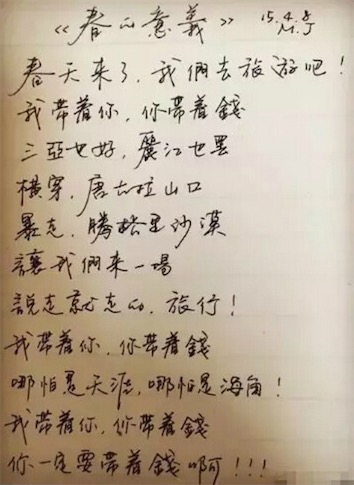 《春的意義》 15.4.8
M.J
春天来了，我們去旅游吧！
我带着你，你带着錢
三亞也好，麗江也罢
橫穿，唐古拉山口
暴走，腾格里沙漠
讓我們来一場
説走就走的，旅行！
我带着你，你带着錢
哪怕是天涯，哪怕是海角！
我带着你，你带着錢
你一定要带着錢啊！！！